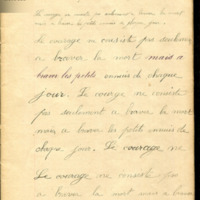 Le courage ne consiste pas seulement à braver la mort
mais à braver les petits ennuis de chaque jour.
Le courage ne consiste pas seulement
à braver la mort mais à
braver les petits ennuis de chaque
jour. Le courage ne consiste
pas seulement à braver la mort
mais à braver les petits ennuis de
chaque jour. Le courage ne
Le courage ne consiste pas
à braver la mort mais à braver